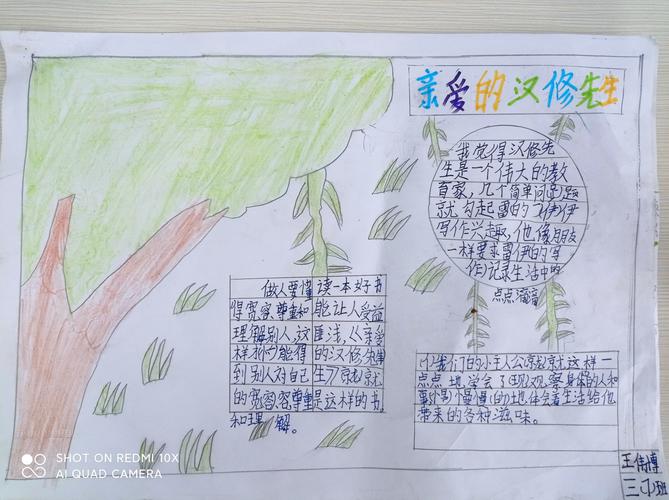 亲爱的汉修先生
我觉得汉修先
生是一个伟大的教
育家,几个简单问题
就勾起雷的伊
写作兴趣,他像朋友
一样要求雷伊的写
作记录生活中的
点点滴滴
做人要懂
得宽容,尊重和
理解别人,这
样才能得
到别人对自己
的宽容,尊重
和理解。
读一本好书
能让人受益
匪浅,《亲爱
的汉修先
生》就
是这样的书
我们的小主人公就这样一
点点地学会了观察身旁的人和
事,慢慢的地体会着生活给他
带来的各种滋味。
王伟博
三 班
SHOT ON REDMI 10X
AI QUAD CAMERA